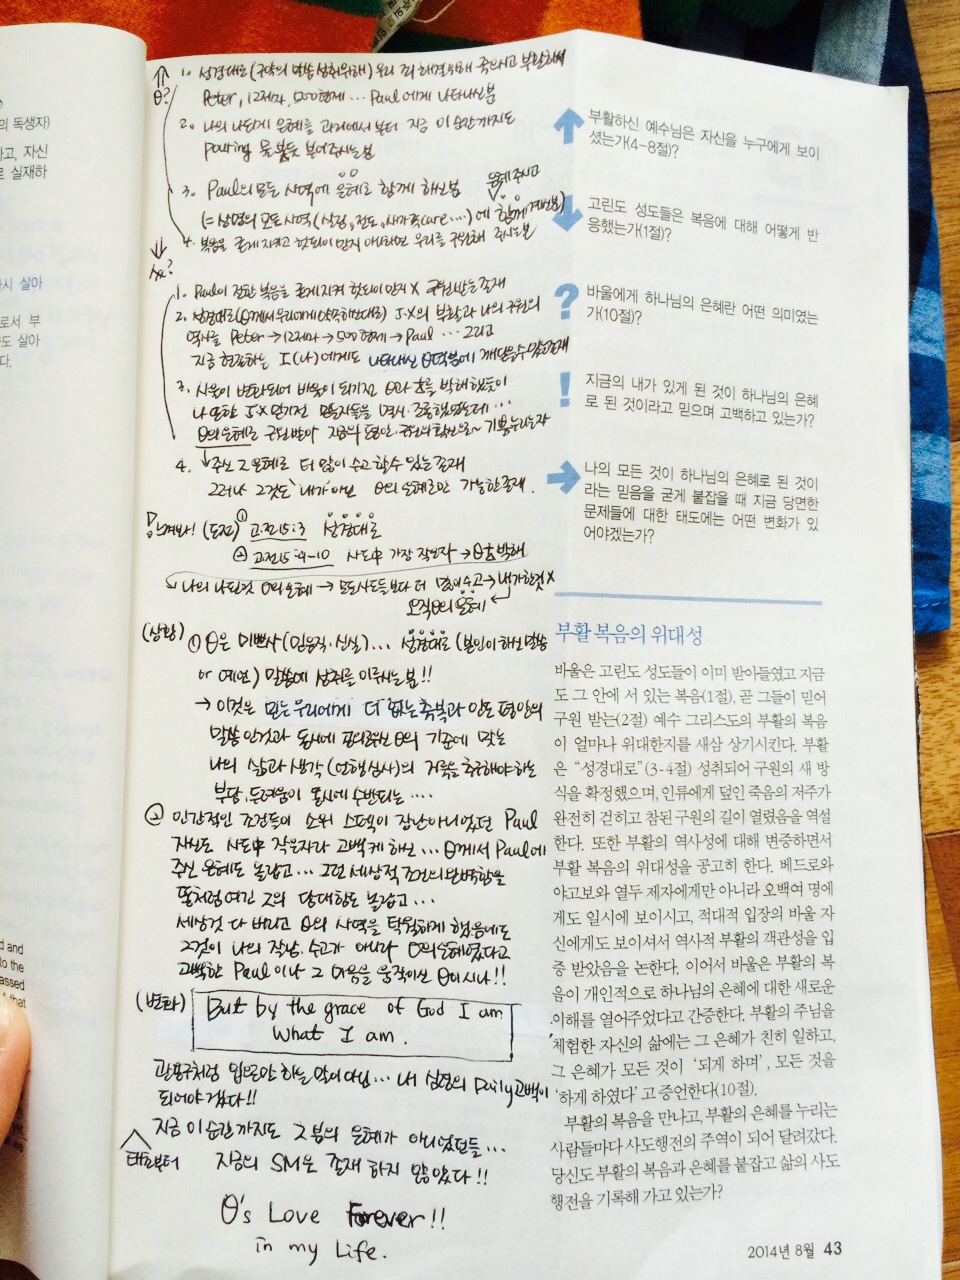 의 독생자)
하고, 자신
로 실재하
시 살아
로서 부
도 살아
다.
d and
to the
assed
that
θ?
1. 성경대로(구약의 말씀 성취위해) 우리 죄 해결위해 죽으시고 부활하셔
Peter, 12제자, 500형제 ... Paul에게 나타나신분
2. 나의 나된게 은혜를 과거에서부터 지금 이 순간까지도
pouring 물붓듯 부어주시는분
3. Paul의 모든 사역에 은혜로 함께 하신분 은혜주시고
(=상명의 모든 사역(상정, 전도, 새가족care ....)에 함께 계신분)
4. 복음을 굳게 지키고 헛되이 믿지 아니하면 우리를 구원해 주시는분
나?
1. Paul이 전한 복음을 굳게 지켜 헛되이 믿지X 구원받는 존재
2. 성경대로(θ께서 우리에게 약속하신대로) J.X의 부활과 나의 구원의
역사를 Peter → 12제자 → 500형제 → Paul ... 그리고
지금 현존하는 I(나)에게도 나타나신 θ덕분에 깨달을수 있는존재
3. 사울이 변화되어 바울이 되기전 θ와 교회를 박해했듯이
나 또한 J.X 믿기전 믿는자들을 멸시·조롱했었는데...
θ의 은혜로 구원받아 지금의 평안·구원의 확신으로~ 기쁨 누리는자
4. ↳주신 그 은혜로 더 많이 수고할수 있는 존재
그러나 그것도 '내가' 아닌 θ의 은혜로만 가능한 존재.
느껴봐! (도전) ① 고전15:3 성경대로
② 고전15:9-10 사도中 가장 작은자 → θ교회 박해
↳ 나의 나된것 θ의 은혜 → 모든사도들보다 더 많이 수고 → 내가한것 X
오직 θ의 은혜
(상황) ① θ은 미쁘사(믿음직·신실)... 성경대로 (본인이 하신 말씀
or 예언) 말씀에 성취를 이루시는 분!!
→ 이것은 믿는 우리에게 더 없는 축복과 안도 평안의
말씀인것과 동시에 의로우신 θ의 기준에 맞는
나의 삶과 생각(언행심사)의 거룩을 추구해야하는
부담, 두려움이 동시에 수반되는 ....
② 인간적인 조건들이 소위 스펙이 장난아니었던 Paul
자신도 사도中 작은자라 고백케 하신 ... θ께서 Paul에
주신 은혜도 놀랍고... 그런 세상적 조건의 완벽함을
똥처럼 여긴 그의 담대함도 놀랍고...
세상것 다 버리고 θ의 사역을 탁월하게 했음에도
그것이 나의 잘남, 수고가 아니라 θ의 은혜였다고
고백한 Paul이나 그 마음을 움직이신 θ이시나!!
(변화) But by the grace of God I am
What I am.
관용구처럼 입으로만 하는 말이 아닌... 내 심령의 Daily 고백이
되어야 겠다!!
지금 이 순간까지도 그 분의 은혜가 아니었던들...
태초부터 지금의 SM은 존재 하지 않았다!!
θ's Love Forever!!
in my Life.
부활하신 예수님은 자신을 누구에게 보이
셨는가(4-8절)?
고린도 성도들은 복음에 대해 어떻게 반
응했는가(1절)?
?
바울에게 하나님의 은혜란 어떤 의미였는
가(10절)?
!
지금의 내가 있게 된 것이 하나님의 은혜
로 된 것이라고 믿으며 고백하고 있는가?
나의 모든 것이 하나님의 은혜로 된 것이
라는 믿음을 굳게 붙잡을 때 지금 당면한
문제들에 대한 태도에는 어떤 변화가 있
어야겠는가?
부활 복음의 위대성
바울은 고린도 성도들이 이미 받아들였고 지금
도 그 안에 서 있는 복음(1절), 곧 그들이 믿어
구원 받는(2절) 예수 그리스도의 부활의 복음
이 얼마나 위대한지를 새삼 상기시킨다. 부활
은 “성경대로”(3-4절) 성취되어 구원의 새 방
식을 확정했으며, 인류에게 덮인 죽음의 저주가
완전히 걷히고 참된 구원의 길이 열렸음을 역설
한다. 또한 부활의 역사성에 대해 변증하면서
부활 복음의 위대성을 공고히 한다. 베드로와
야고보와 열두 제자에게만 아니라 오백여 명에
게도 일시에 보이시고, 적대적 입장의 바울 자
신에게도 보이셔서 역사적 부활의 객관성을 입
증 받았음을 논한다. 이어서 바울은 부활의 복
음이 개인적으로 하나님의 은혜에 대한 새로운
이해를 열어주었다고 간증한다. 부활의 주님을
체험한 자신의 삶에는 그 은혜가 친히 일하고,
그 은혜가 모든 것이 ‘되게 하며’, 모든 것을
‘하게 하였다’고 증언한다(10절).
부활의 복음을 만나고, 부활의 은혜를 누리는
사람들마다 사도행전의 주역이 되어 달려갔다.
당신도 부활의 복음과 은혜를 붙잡고 삶의 사도
행전을 기록해 가고 있는가?
2014년 8월 43